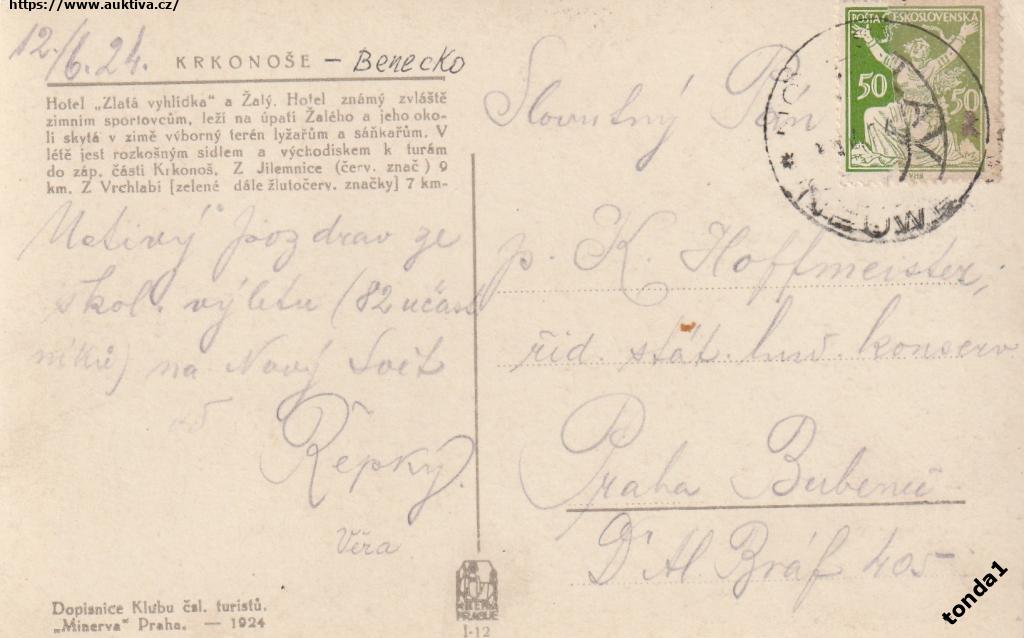 https://www.auktiva.cz/
12./6.24.
KRKONOŠE – Benecko
Hotel „Zlatá vyhlídka" a Žalý. Hotel známý zvláště
zimním sportovcům, leží na úpatí Žalého a jeho oko-
lí skytá v zimě výborný terén lyžařům a sáňkařům. V
létě jest rozkošným sídlem a východiskem k turám
do záp. části Krkonoš. Z Jilemnice (červ. znač ) 9
km. Z Vrchlabí [zelené dále žlutočerv. značky] 7 km-
Uctivý pozdrav ze
škol. výletu (82 účast
níků) na Nový Svět
Řepký.
Věra
Dopisnice Klubu čsl. turistů.
„Minerva" Praha. — 1924
PRAGUE
I-12
POŠTA ČESKOSLOVENSKÁ
50 50
NEUWE
Slovutný Pán
p. K. Hoffmeister,
řid. stát. hud. konserv
Praha Bubeneč
Dr Al Bráf 405
tonda1